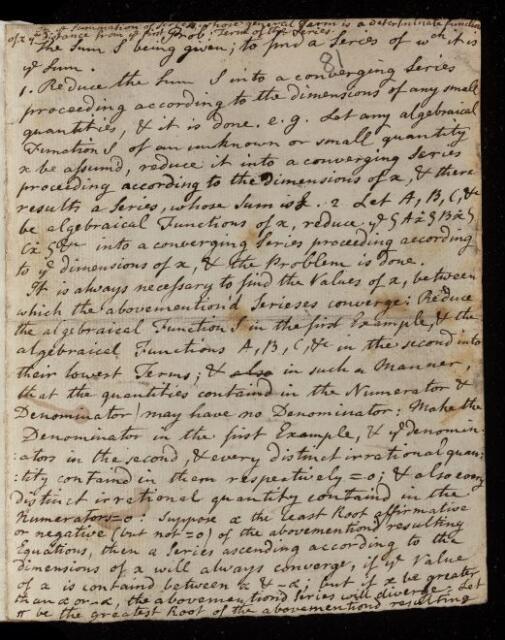 Summation of Series whose general Term is a determinate function
of z ye distance from ye first Term of the Series.
Prob.
The Sum S being given; to find a Series of wch it is
ye Sum.
81
1. Reduce the Sum S into a converging Series
proceeding according to the dimensions of any small
quantities, & it is done. e.g. Let any algebraical
Function S of an unknown or small quantity
x be assum'd, reduce it into a converging Series
proceeding according to the dimensions of x, & there
results a Series, whose Sum is S. 2 Let A, B, C, &c
be algebraical Functions of x, reduce ye ∫ Aẋ ∫ Bẋ ∫
Cẋ ∫ &c into a converging Series proceeding according
to ye dimensions of x, & the Problem is done.
It is always necessary to find the Values of x, between
which the abovemention'd Serieses converge: Reduce
the algebraical Function S in the first Example, & the
algebraical Functions A, B, C, &c in the second into
their lowest Terms; & also in such a Manner,
that the quantities containd in the Numerator &
Denominator may have no Denominator: Make the
Denominator in the first Example, & ye denomin:
:ators in the second, & every distinct irrational quan:
:tity containd in them respectively = 0; & also every
distinct irretional quantity containd in the
Numerators = 0: suppose α the least Root affirmative
or negative (but not = 0) of the abovementiond resulting
Equations, then a Series ascending according to the
dimensions of x will always converge, if ye Value
of x is containd between α & -α; but if x be greater
than α or -α, the abovementiond Series will diverge: Let
π be the greatest Root of the abovementiond resulting